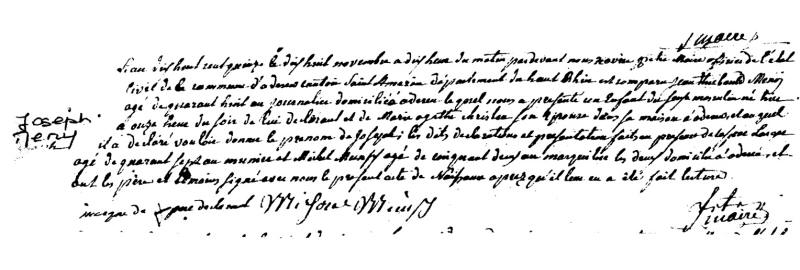 maire
L'an dix huit cent quinze le dix huit novembre a dix heure du matin par devant nous xavier maire officier de l'état
civil de la commune d'oderen canton Saint Amarin département du haut Rhin est comparu jean thiebaud
agé de quarant huit an journalier domicilié a oderen lequel nous a présenté un Enfant du sexe masculin né hier
a onze heure du soir de lui déclarant et de Marie agathe son Epouse dans sa maison a oderen, et auquel
Joseph
il a declaré vouloir donner le prenom de Joseph, les dits declaration et presentation faits en presence de
agé de quarant sept an meunier et Michel agé de cinquant deux an marguillier les deux domicilié a oderen, et
ont les père et témoins signé avec nous le present acte de Naissance aprez qu'il leur en a été fait lecture
marque de pere declarant Michael
maire